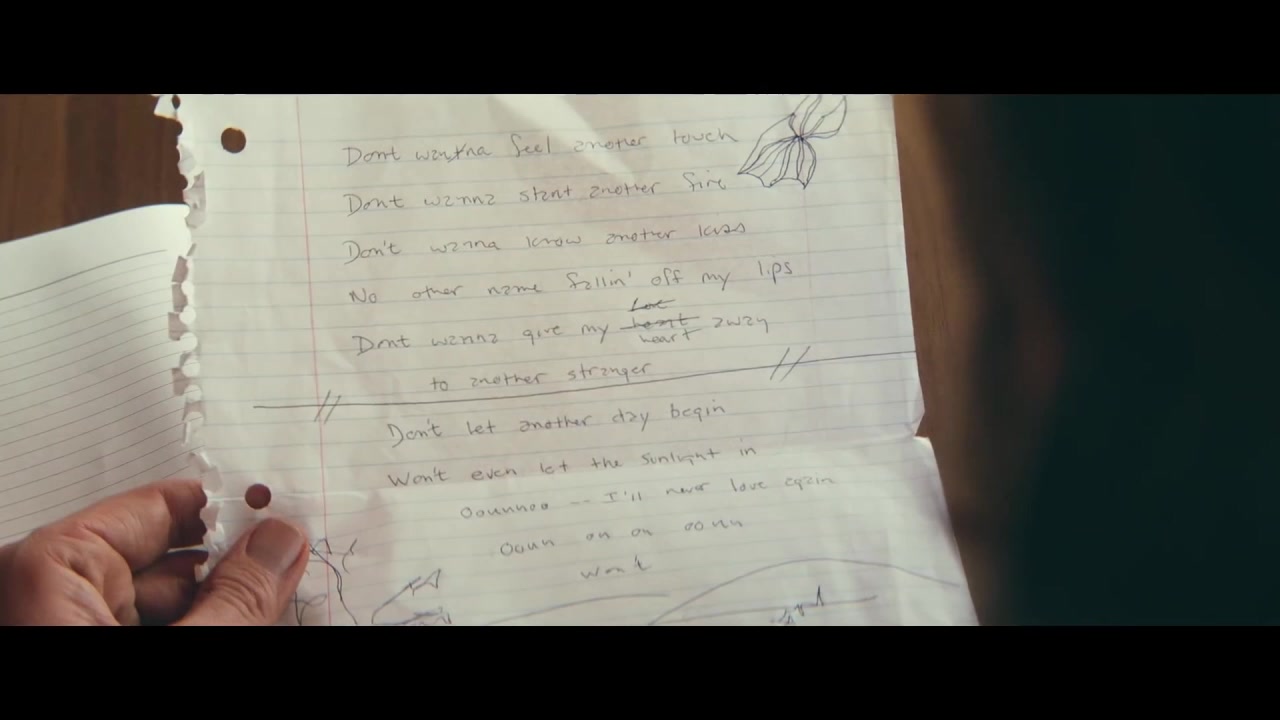 Dont wanna feel another touch
Dont wanna start another fire
Don't wanna know another kiss
No other name fallin' off my lips
Dont wanna give my heart heart away
to another stranger
Don't let another day begin
Won't even let the sunlight in
Oounnoo -- I'll never love again
Ooun on on oo nn
won't